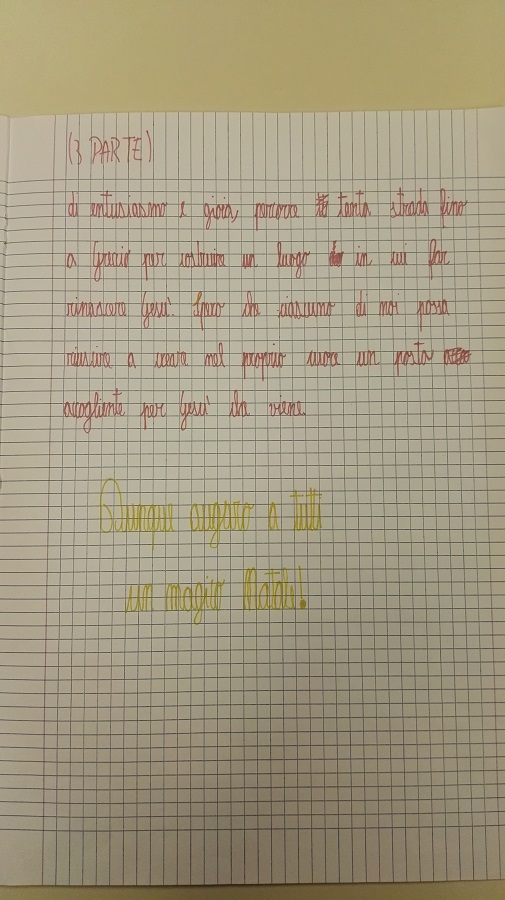 (3 PARTE)
di entusiasmo e gioia, percorre tanta strada fino
a Greccio per costruire un luogo in cui far
rinascere Gesù. Spero che ciascuno di noi possa
riuscire a creare nel proprio cuore un posto
accogliente per Gesù che viene.
Dunque auguro a tutti
un magico Natale!